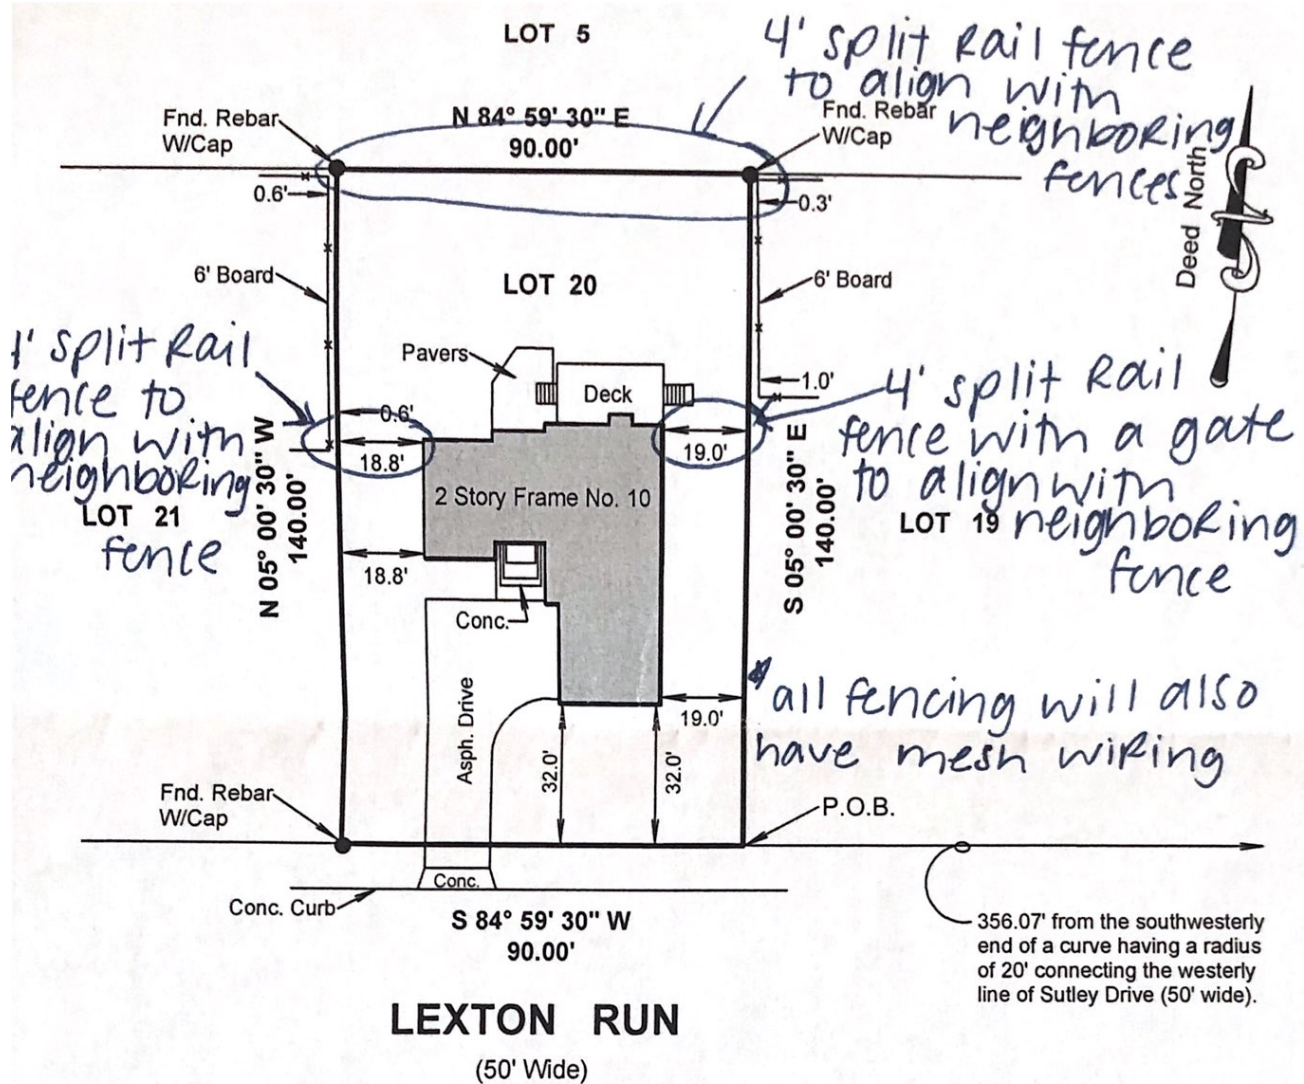 LOT 5
4' split Rail fence
to align with
neighboring
fences
Fnd. Rebar
W/Cap
N 84° 59' 30" E
90.00'
Fnd. Rebar
W/Cap
0.6'
0.3'
Deed North
6' Board
LOT 20
6' Board
4' split Rail
fence to
align with
neighboring
fence
Pavers
Deck
1.0'
4' split Rail
fence with a gate
to align with
neighboring
fence
0.6'
18.8'
19.0'
2 Story Frame No. 10
LOT 21
N 05° 00' 30" W
140.00'
S 05° 00' 30" E
140.00'
LOT 19
18.8'
Conc.
Asph. Drive
19.0'
32.0'
32.0'
* all fencing will also
have mesh wiring
Fnd. Rebar
W/Cap
P.O.B.
Conc.
Conc. Curb
S 84° 59' 30" W
90.00'
356.07' from the southwesterly
end of a curve having a radius
of 20' connecting the westerly
line of Sutley Drive (50' wide).
LEXTON RUN
(50' Wide)